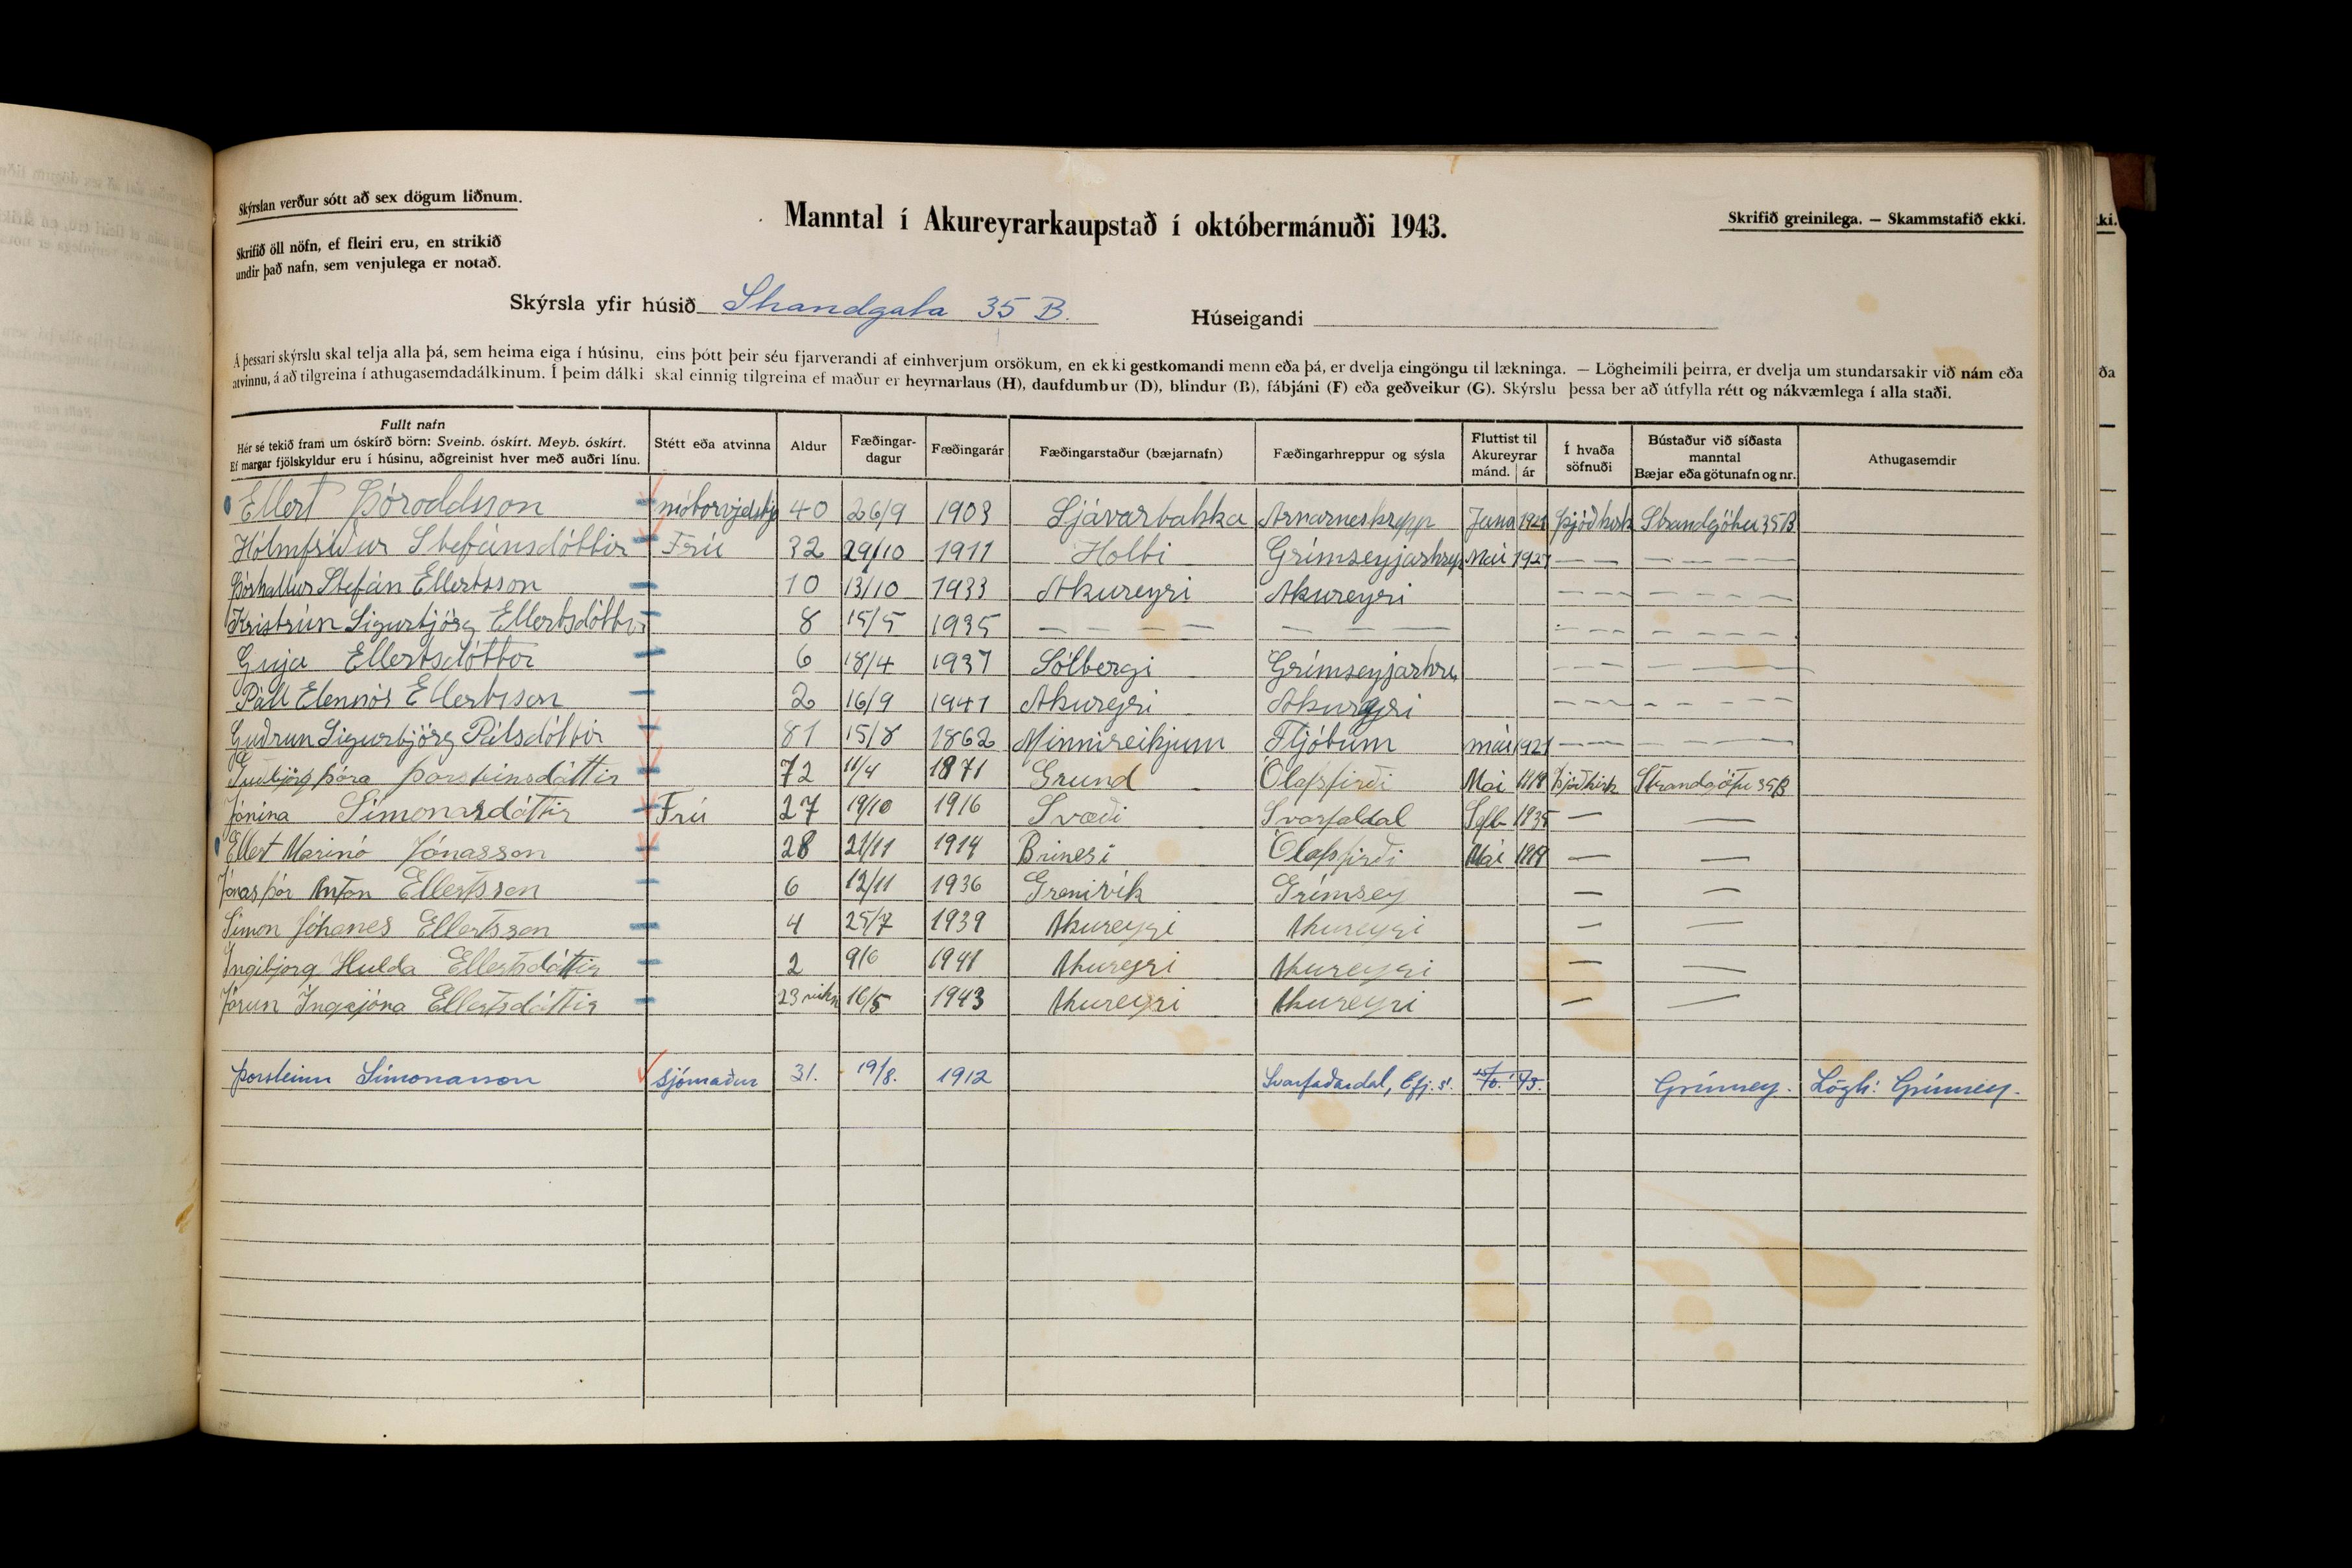 Skýrslan verður sótt að sex dögum liðnum.
Skrifið öll nöfn, ef fleiri eru, en strikið
undir það nafn, sem venjulega er notað.
Manntal í Akureyrarkaupstað í októbermánuði 1943.
Skrifið greinilega. — Skammstafið ekki.
Skýrsla yfir húsið Strandgata 35 B.
Húseigandi
Á þessari skýrslu skal telja alla þá, sem heima eiga í húsinu, eins þótt þeir séu fjarverandi af einhverjum orsökum, en ekki gestkomandi menn eða þá, er dvelja eingöngu til lækninga. — Lögheimili þeirra, er dvelja um stundarsakir við nám eða
atvinnu, á að tilgreina í athugasemdadálkinum. Í þeim dálki skal einnig tilgreina ef maður er heyrnarlaus (H), daufdumbur (D), blindur (B), fábjáni (F) eða geðveikur (G). Skýrslu þessa ber að útfylla rétt og nákvæmlega í alla staði.
Fullt nafn
Hér sé tekið fram um óskírð börn: Sveinb. óskírt. Meyb. óskírt.
Ef margar fjölskyldur eru í húsinu, aðgreinist hver með auðri línu.
Stétt eða atvinna
Aldur
Fæðingar-
dagur
Fæðingarár
Fæðingarstaður (bæjarnafn)
Fæðingarhreppur og sýsla
Fluttist til
Akureyrar
mánd. ár
Í hvaða
söfnuði
Bústaður við síðasta
manntal
Bæjar eða götunafn og nr.
Athugasemdir
Ellert Þóroddsson 40 26/9 1903 Sjávarbakka Arnarneshrepp Strandgötu 35B
Hólmfríður Stefánsdóttir Frú 32 29/10 1911 Holti Grímseyjarhrep Mai — — — — — —
Þórhallur Stefán Ellertsson 10 13/10 1933 Akureyri Akureyri — — — — — — —
Kristrún Sigurbjörg Ellertsdóttir 8 15/5 1935 — — — — — — — — — — — — — —
Ellertsdóttor 6 18/4 1937 Sólbergi Grímseyjarhre. — — — — — —
Páll Ellertsson 2 16/9 1941 Akureyri Akureyri — — — — — — —
Guðrun Sigurbjörg Pálsdóttir 81 15/8 1862 Minnireikjum Fljótum mái — — — — — —
Guðbjörg Þóra Þorsteinsdóttir 72 11/4 1871 Grund Ólafsfirði Mai Þjóðkirk Strandgötu 35B
Jónína Símonardóttir Frú 27 19/10 1916 Svæði Svarfaldal 1935 — —
Ellert Marinó Jónasson 28 21/11 1914 Brinesi Ólafsfirði Mai — —
Jónas Þór Anton Ellertsson 6 12/11 1936 Grenivík Grímsey — —
Símon Jóhanes Ellertsson 4 25/7 1939 Akureyri Akureyri — —
Ingibjorg Hulda Ellertsdóttir 2 9/6 1941 Akureyri Akureyri — —
Jórun Ellertsdóttir 23 16/5 1943 Akureyri Akureyri — —
Þorsteinn Símonarson sjómaður 31. 19/8. 1912 Svarfaðardal, Efj.s. Grímsey. Lögh: Grímsey.
ki.
ða